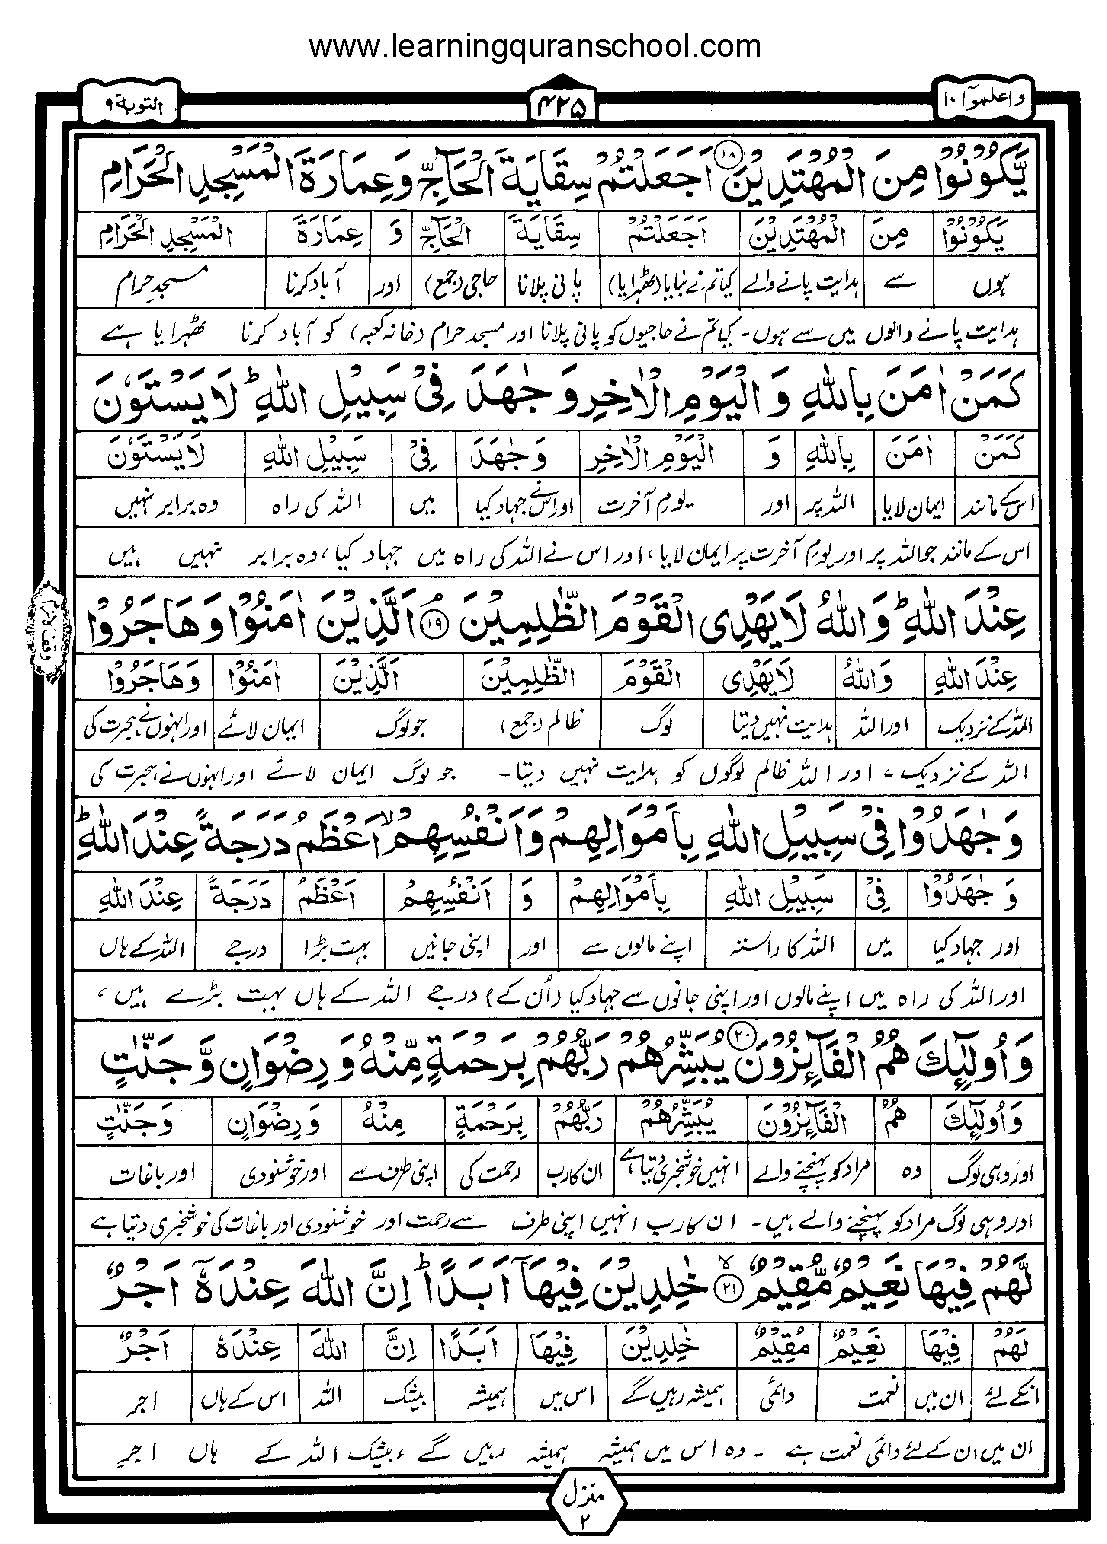 www.learningquranschool.com
واعلموآ ١٠
۴۲۵
التوبة ٩
يَّكُوْنُوْا مِنَ الْمُهْتَدِيْنَ ۱۸ اَجَعَلْتُمْ سِقَايَةَ الْحَآجِّ وَعِمَارَةَ الْمَسْجِدِ الْحَرَامِ
يَكُوْنُوْا مِنَ الْمُهْتَدِيْنَ اَجَعَلْتُمْ سِقَايَةَ الْحَآجِّ وَ عِمَارَةَ الْمَسْجِدِ الْحَرَامِ
ہوں سے ہدایت پانے والے کیا تم نے بنایا (ٹھہرایا) پانی پلانا حاجی (جمع) اور آباد کرنا مسجد حرام
ہدایت پانے والوں میں سے ہوں۔ کیا تم نے حاجیوں کو پانی پلانا اور مسجد حرام (خانہ کعبہ) کو آباد کرنا ٹھہرایا ہے
كَمَنْ اٰمَنَ بِاللّٰهِ وَ الْيَوْمِ الْاٰخِرِ وَ جٰهَدَ فِيْ سَبِيْلِ اللّٰهِ ؕ لَا يَسْتَوٗنَ
كَمَنْ اٰمَنَ بِاللّٰهِ وَ الْيَوْمِ الْاٰخِرِ وَ جٰهَدَ فِيْ سَبِيْلِ اللّٰهِ لَا يَسْتَوٗنَ
اس کے مانند ایمان لایا اللہ پر اور یوم آخرت اور اس نے جہاد کیا میں اللہ کی راہ وہ برابر نہیں
اس کے مانند جو اللہ پر اور یوم آخرت پر ایمان لایا، اور اس نے اللہ کی راہ میں جہاد کیا، وہ برابر نہیں ہیں
عِنْدَ اللّٰهِ ؕ وَاللّٰهُ لَا يَهْدِى الْقَوْمَ الظّٰلِمِيْنَ ۱۹ اَلَّذِيْنَ اٰمَنُوْا وَهَاجَرُوْا
عِنْدَ اللّٰهِ وَاللّٰهُ لَا يَهْدِى الْقَوْمَ الظّٰلِمِيْنَ اَلَّذِيْنَ اٰمَنُوْا وَهَاجَرُوْا
اللہ کے نزدیک اور اللہ ہدایت نہیں دیتا لوگ ظالم (جمع) جو لوگ ایمان لائے اور انہوں نے ہجرت کی
اللہ کے نزدیک، اور اللہ ظالم لوگوں کو ہدایت نہیں دیتا۔ جو لوگ ایمان لائے اور انہوں نے ہجرت کی
وَ جٰهَدُوْا فِيْ سَبِيْلِ اللّٰهِ بِاَمْوَالِهِمْ وَاَنْفُسِهِمْ ۙ اَعْظَمُ دَرَجَةً عِنْدَ اللّٰهِ ؕ
وَ جٰهَدُوْا فِيْ سَبِيْلِ اللّٰهِ بِاَمْوَالِهِمْ وَ اَنْفُسِهِمْ اَعْظَمُ دَرَجَةً عِنْدَ اللّٰهِ
اور جہاد کیا میں اللہ کا راستہ اپنے مالوں سے اور اپنی جانیں بہت بڑا درجے اللہ کے ہاں
اور اللہ کی راہ میں اپنے مالوں اور اپنی جانوں سے جہاد کیا (اُن کے) درجے اللہ کے ہاں بہت بڑے ہیں،
وَ اُولٰٓئِكَ هُمُ الْفَآئِزُوْنَ ۲۰ يُبَشِّرُهُمْ رَبُّهُمْ بِرَحْمَةٍ مِّنْهُ وَ رِضْوَانٍ وَّ جَنّٰتٍ
وَ اُولٰٓئِكَ هُمُ الْفَآئِزُوْنَ يُبَشِّرُهُمْ رَبُّهُمْ بِرَحْمَةٍ مِنْهُ وَ رِضْوَانٍ وَ جَنّٰتٍ
اور وہی لوگ وہ مراد کو پہنچنے والے انہیں خوشخبری دیتا ہے ان کا رب رحمت کی اپنی طرف سے اور خوشنودی اور باغات
اور وہی لوگ مراد کو پہنچنے والے ہیں۔ ان کا رب انہیں اپنی طرف سے رحمت اور خوشنودی اور باغات کی خوشخبری دیتا ہے
لَّهُمْ فِيْهَا نَعِيْمٌ مُّقِيْمٌ ۙ ۲۱ خٰلِدِيْنَ فِيْهَآ اَبَدًا ؕ اِنَّ اللّٰهَ عِنْدَهٗٓ اَجْرٌ
لَهُمْ فِيْهَا نَعِيْمٌ مُقِيْمٌ خٰلِدِيْنَ فِيْهَا اَبَدًا اِنَّ اللّٰهَ عِنْدَهٗ اَجْرٌ
انکے لئے ان میں نعمت دائمی ہمیشہ رہیں گے اس میں ہمیشہ بیشک اللہ اس کے ہاں اجر
ان میں ان کے لئے دائمی نعمت ہے ۔ وہ اس میں ہمیشہ ہمیشہ رہیں گے، بیشک اللہ کے ہاں اجرِ
منزل
۲